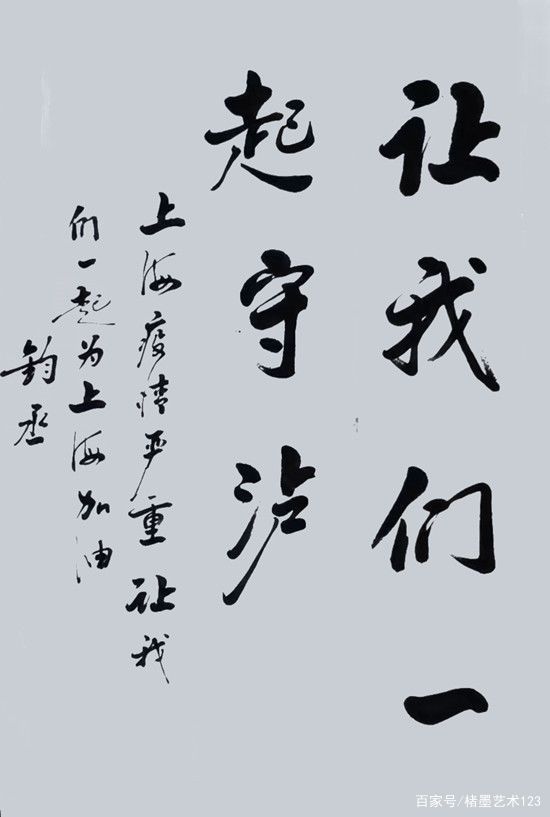 让我们一
起守沪
上海疫情严重让我
们一起为上海加油
钧丞
百家号/楮墨艺术123